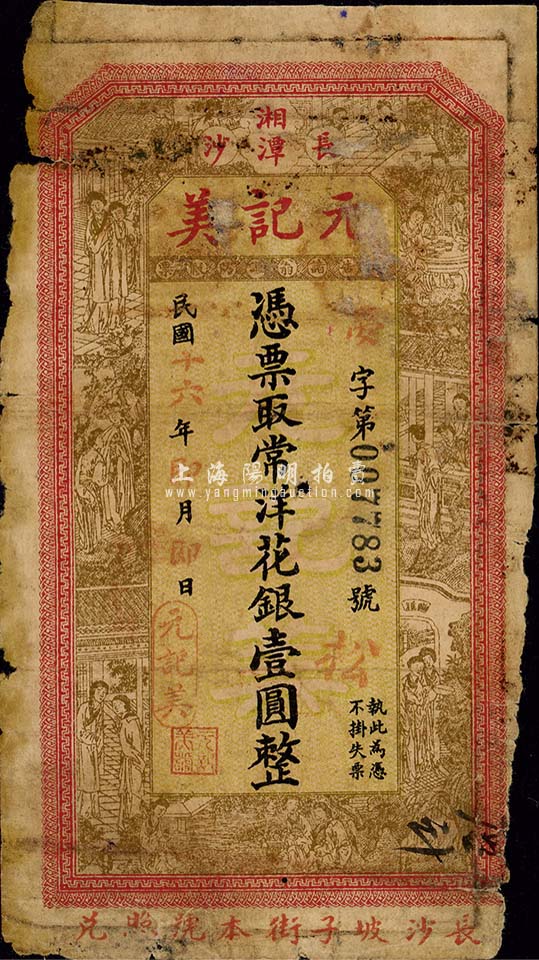 湘潭
長沙
元記美
字第007783號
憑票取常洋花銀壹圓整
民國十六年即月即日
元記美
執此為憑
不掛失票
松
長沙坡子街本號照兌
上海陽明拍賣
www.yangmingauction.com